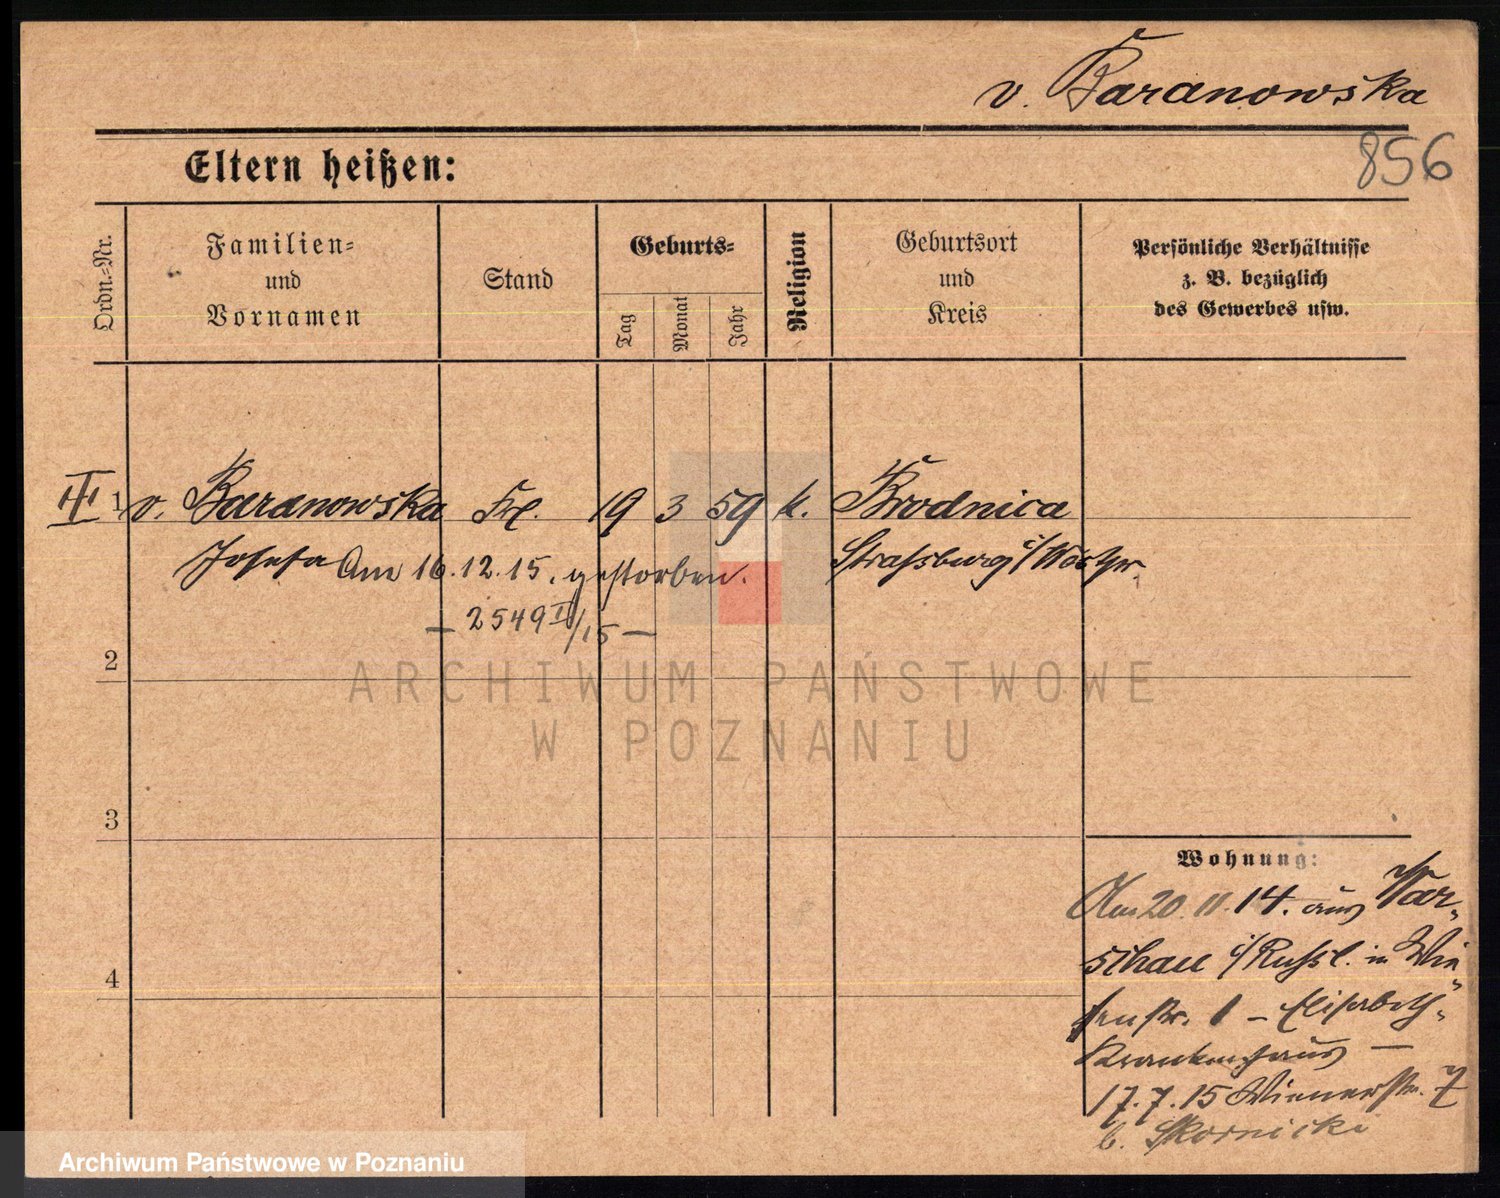 v. Baranowska
856
Eltern heißen:
Ordn.-Nr.
Familien-
und
Vornamen
Stand
Geburts-
Tag
Monat
Jahr
Religion
Geburtsort
und
Kreis
Persönliche Verhältnisse
z. B. bezüglich
des Gewerbes usw.
1 v. Baranowska Frl. 19 3 59 k. Brodnica
Josefa Am 16.12.15. gestorben. Strassburg i/Westpr.
— 2549 I/15 —
2
3
4
Wohnung:
Am 20.11.14. aus War-
schau i/Russl. in Wie-
senstr. 1 – Elisabeth-
Krankenhaus —
17.7.15 Wienerstr. 7
b. Skornicki
ARCHIWUM PAŃSTWOWE
W POZNANIU
Archiwum Państwowe w Poznaniu